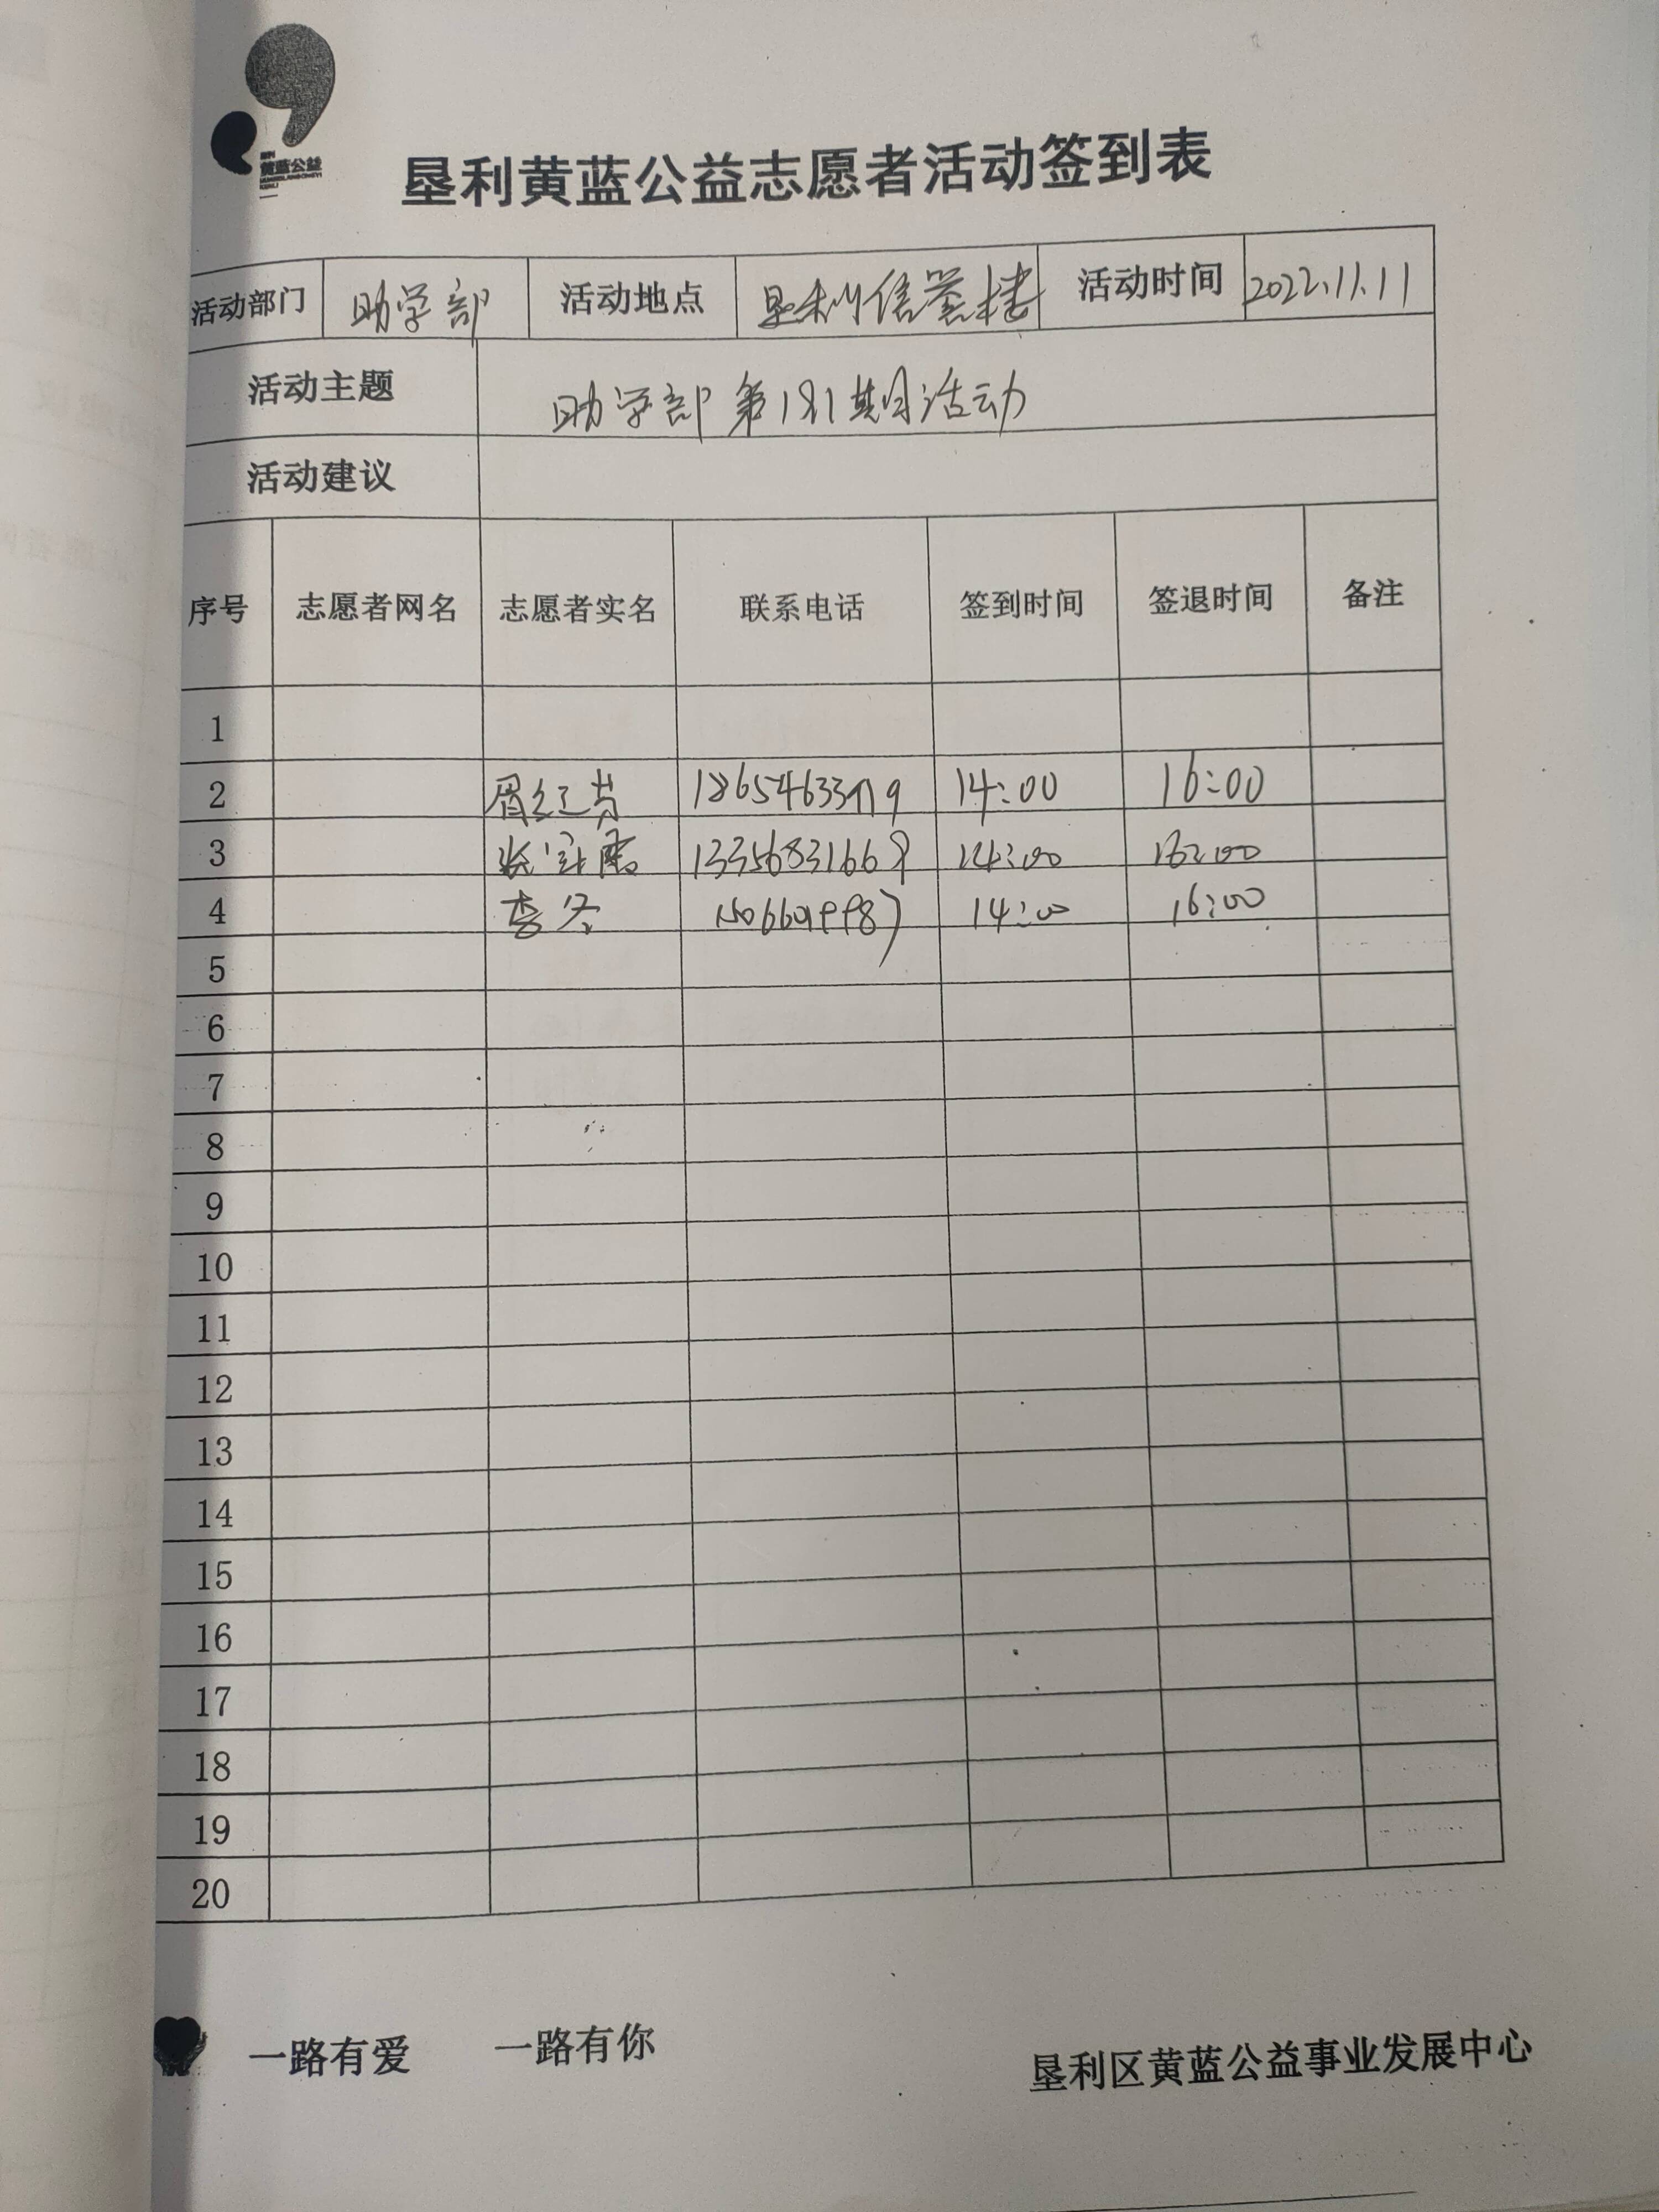 黄蓝公益
垦利黄蓝公益志愿者活动签到表
活动部门 助学部 活动地点 垦利信誉楼 活动时间 2022.11.11
活动主题 助学部第181期活动
活动建议
序号 志愿者网名 志愿者实名 联系电话 签到时间 签退时间 备注
1
2 14:00 16:00
3 13356831669 14:00 16:00
4 李冬 14:00 16:00
5
6
7
8
9
10
11
12
13
14
15
16
17
18
19
20
一路有爱 一路有你
垦利区黄蓝公益事业发展中心